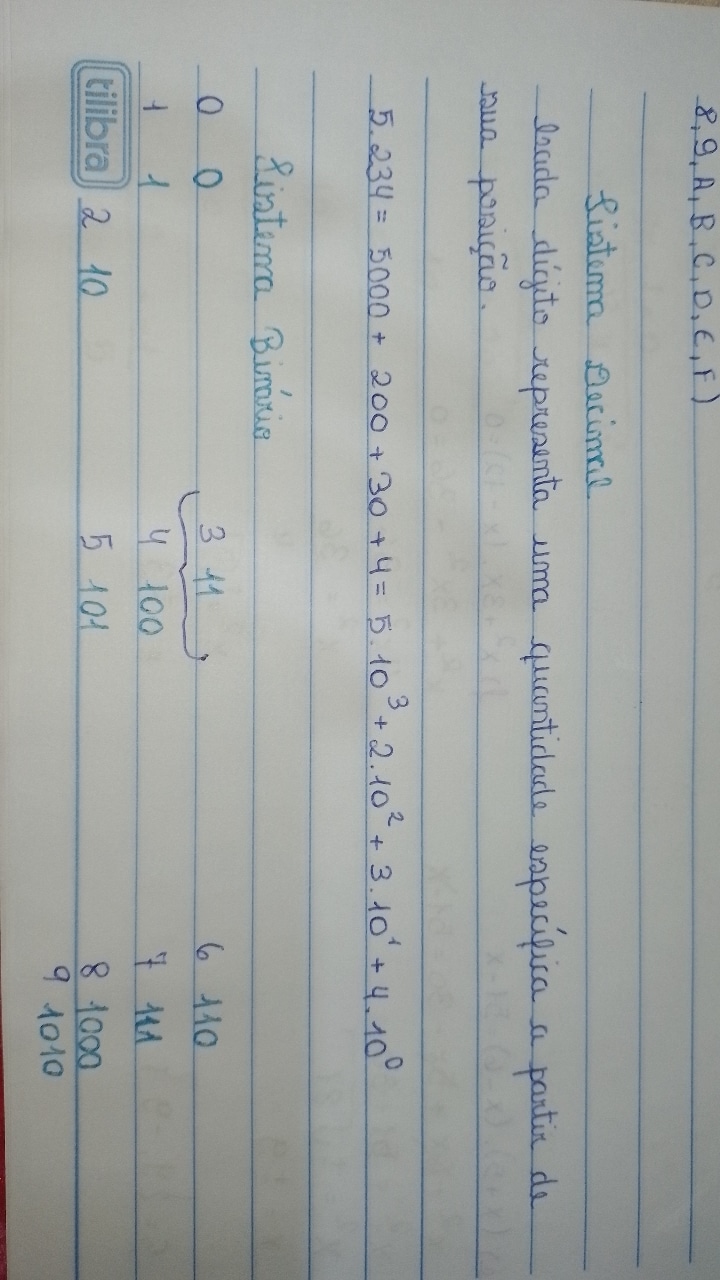 8, 9, A, B, C, D, E, F)
Sistema Decimal
Cada dígito representa uma quantidade específica a partir de
sua posição.
5.234 = 5000 + 200 + 30 + 4 = 5.10³ + 2.10² + 3.10¹ + 4.10⁰
Sistema Binário
0 0 3 11 6 110
1 1 4 100 7 111
tilibra 2 10 5 101 8 1000
9 1010